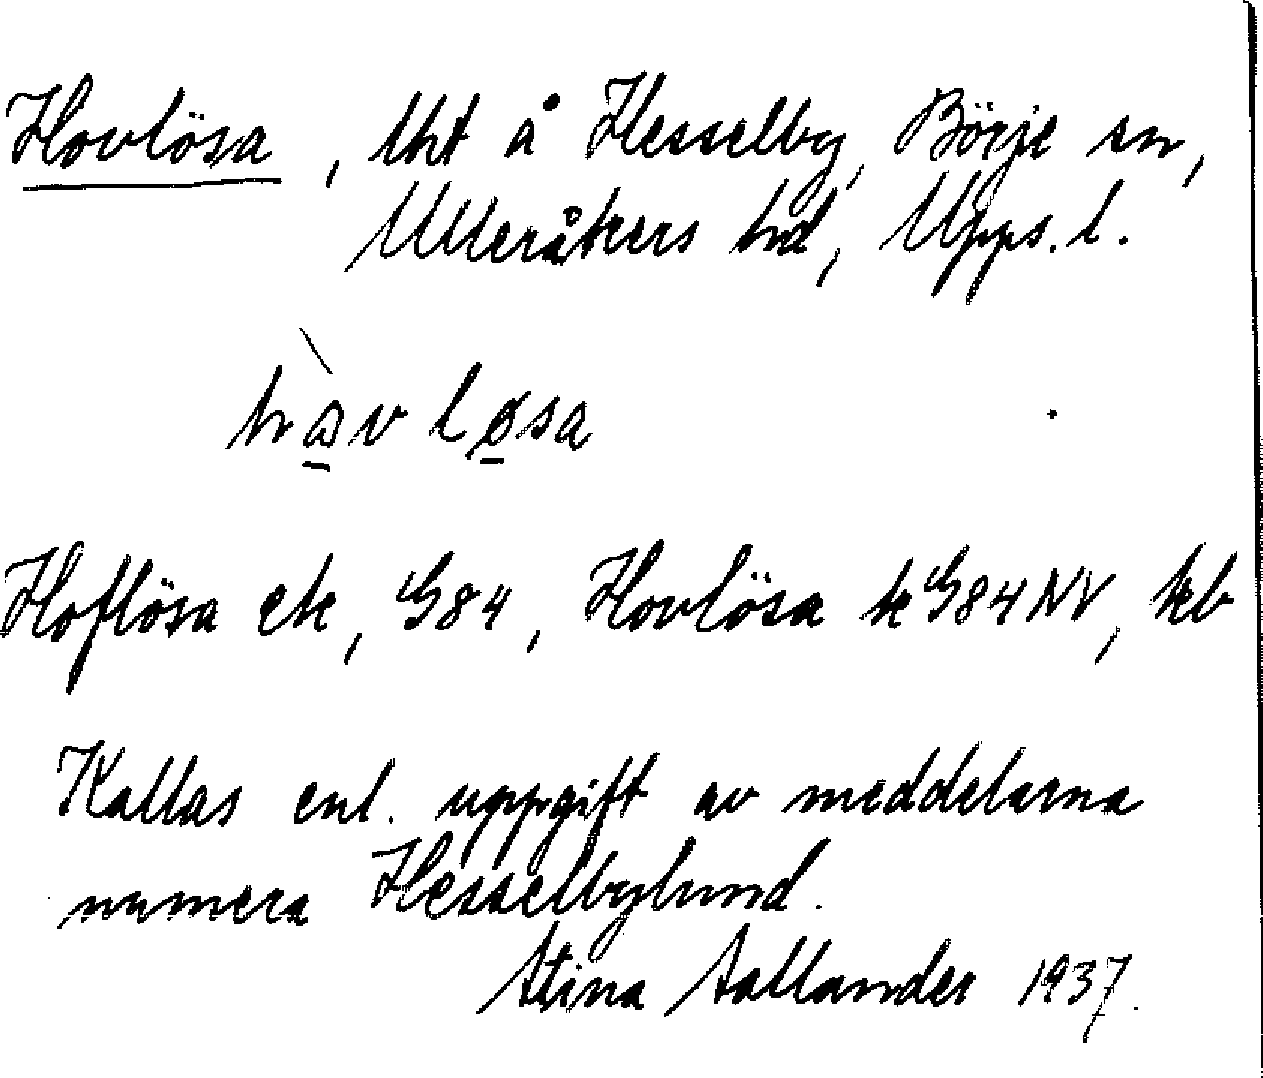 Hovlösa, lht å Hesselby, Börje sn,
Ulleråkers hd, Upps. l.
hàv løsa
Hoflösa ek, G84, Hovlösa k G84 NV, kb
Kallas enl. uppgift av meddelarna
numera Hesselbylund.
Stina Sallander 1937.